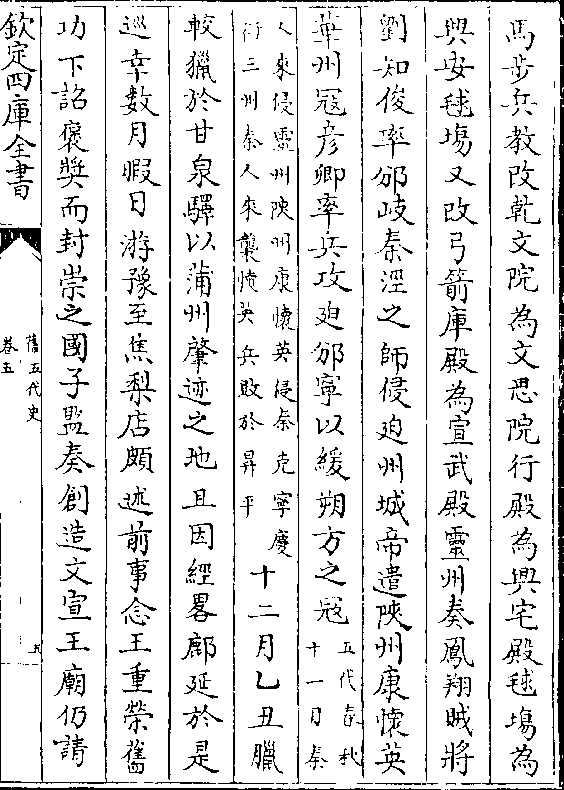 馬步兵教改乾文院為文思院行殿為興宅殿毬場為
興安毬場又改弓箭庫殿為宣武殿靈州奏鳳翔賊將
劉知俊率邠岐秦涇之師侵迫州城帝遣陝州康懷英
華州寇彥卿率兵攻迫邠寧以緩朔方之寇五代春秋十一月秦
人來侵靈州陜州康懷英侵秦克寧慶衍三州秦人來襲懷英兵敗於昇平十二月乙丑臘
較獵於甘泉驛以蒲州肇迹之地且因經畧鄜延於是
巡幸數月暇日游豫至焦梨店頗述前事念王重榮舊
功下詔褒奬而封崇之國子監奏創造文宣王廟仍請
欽定四庫全書
舊五代史
卷五